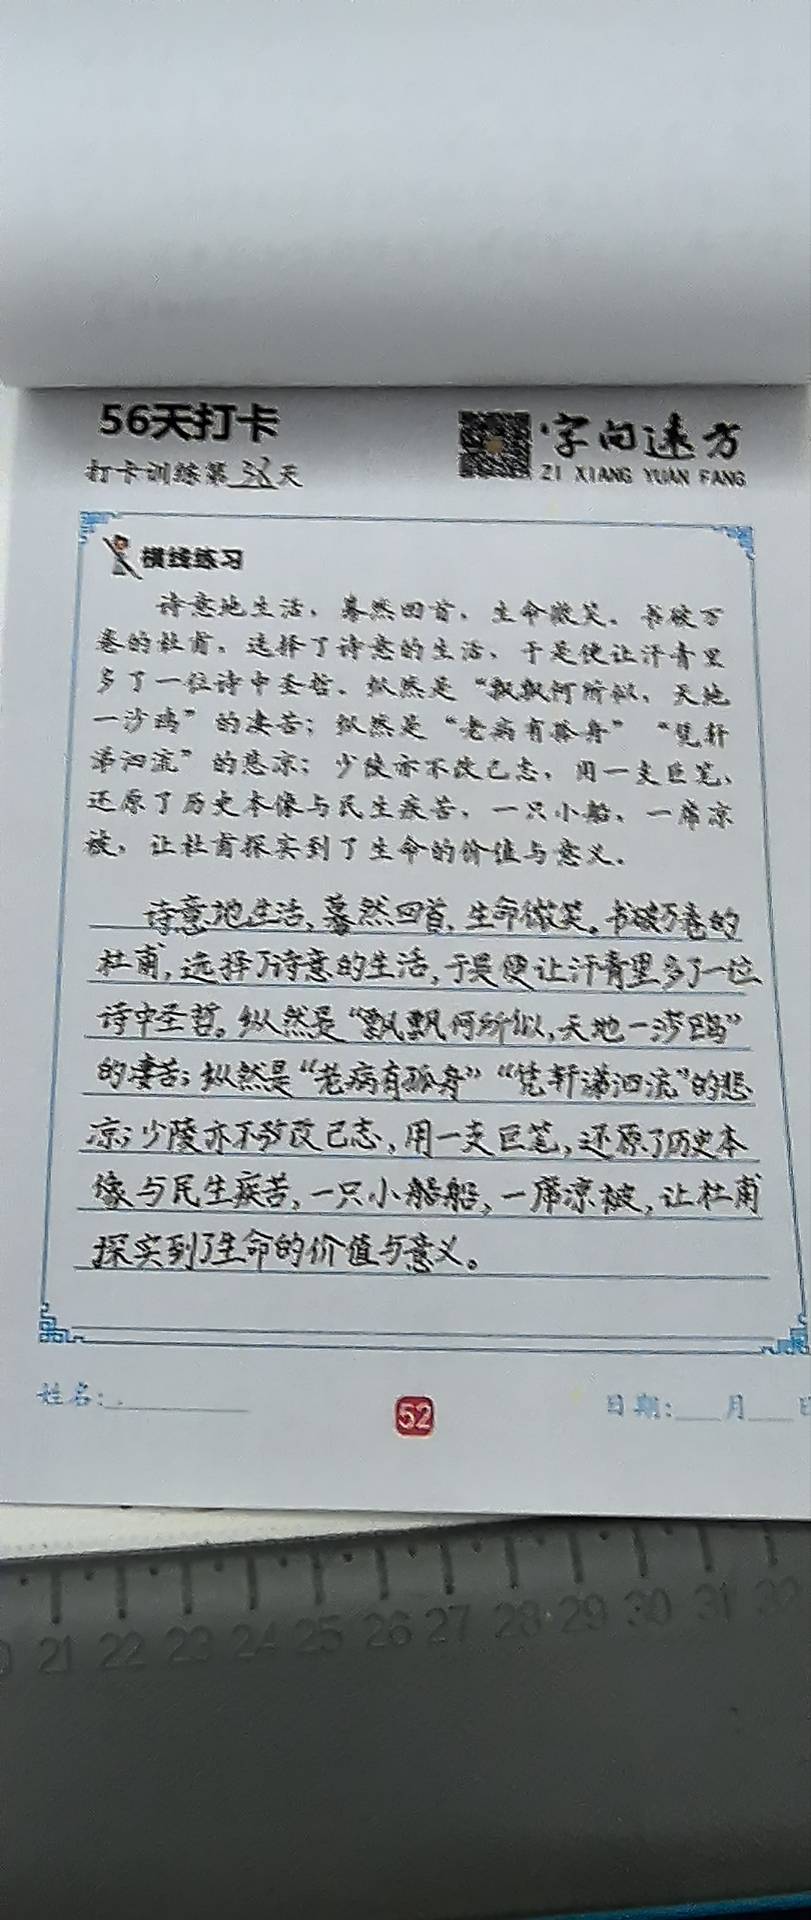 56天打卡
字向远方
打卡训练第38天
ZI XIANG YUAN FANG
横线练习
诗意地生活，蓦然回首，生命微笑。书破万
卷的杜甫，选择了诗意的生活，于是便让汗青里
多了一位诗中圣哲。纵然是“飘飘何所似，天地
一沙鸥”的凄苦；纵然是“老病有孤舟”“凭轩
涕泗流”的悲凉；少陵亦不改己志，用一支巨笔，
还原了历史本像与民生疾苦，一只小船，一席凉
被，让杜甫探实到了生命的价值与意义。
诗意地生活，蓦然回首，生命微笑。书破万卷的
杜甫，选择了诗意的生活，于是便让汗青里多了一位
诗中圣哲。纵然是“飘飘何所似，天地一沙鸥”
的凄苦；纵然是“老病有孤舟”“凭轩涕泗流”的悲
凉；少陵亦不改己志，用一支巨笔，还原了历史本
像与民生疾苦，一只小船船，一席凉被，让杜甫
探实到了生命的价值与意义。
姓名：
52
日期：
月
日
21 22 23 24 25 26 27 28 29 30 31 32